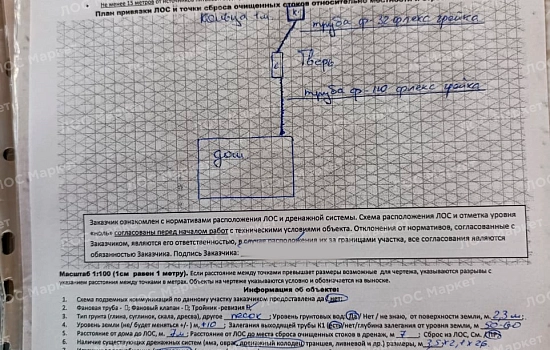 Не менее 15 метров от
План привязки ЛОС и точки сброса очищенных стоков относительно
К1
труба ф-32 флекс грейка
Тверь
труба ф-110 флекс грейка
дом
Заказчик ознакомлен с нормативами расположения ЛОС и дренажной системы. Схема расположения ЛОС и отметка уровня
«ноль» согласованы перед началом работ с техническими условиями объекта. Отклонения от нормативов, согласованные с
Заказчиком, являются его ответственностью, в случае расположения их за границами участка, все согласования являются
обязанностью Заказчика. Подпись Заказчика:
Масштаб 1:100 (1см равен 1 метру). Если расстояние между точками превышает размеры возможные для чертежа, указываются разрывы с
указанием расстояния между точками в метрах. Объекты на чертеже указываются условно и обозначаются на выноске.
Информация об объекте:
1. Схема подземных коммуникаций по данному участку заказчиком предоставлена да нет
2. Фановая труба - Фановый клапан - Тройник -ревизия
3. Тип грунта (глина, суглинок, скала, дресва), другое песок; Уровень грунтовых вод: Да/ Нет / не знаю, от поверхности земли, м. 2,3 м;
4. Уровень земли (мы будет меняться +/-) м, +10; Залегания выходящей трубы К1 есть/нет/глубина залегания от уровня земли, м, 50-60
5. Расстояние от дома до ЛОС, м 7м; Расстояние от ЛОС до места сброса очищенных стоков в дренаж, м 7; Сброс на ЛОС, см.
6. Наличие существующих дренажных систем (яма, овраг, дренажный колодец, траншея, ливневой и др.) размеры, м
ЛОС Маркет